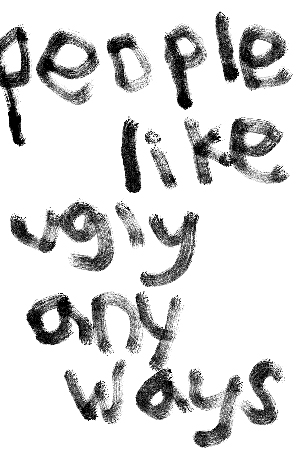 people
like
ugly
any
ways